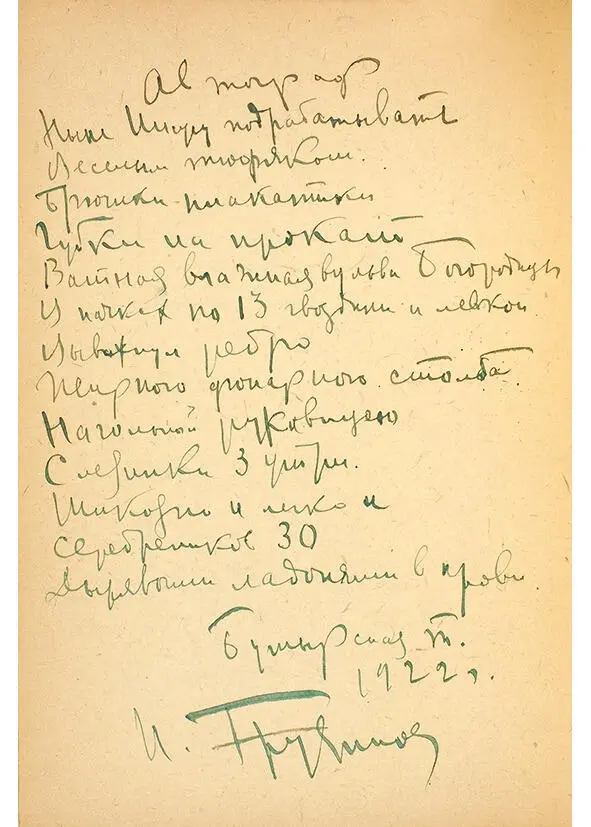 Автограф
Ныне Иисусу подрабатывать
Веселым тюфяком.
Брюшки плакатики
Губки на прокат
Ватная влажная вульва Богородицы
И пачках по 13 гвоздики и левкои
Вывихнул ребро
Жирного фонарного столба
Нагольный руковицею
Слезинки 3 утри.
Шикозно и легко и
Серебреников 30
Дырявыми ладонями в крови.
Бутырская т.
1922 г.
И. Грузинов